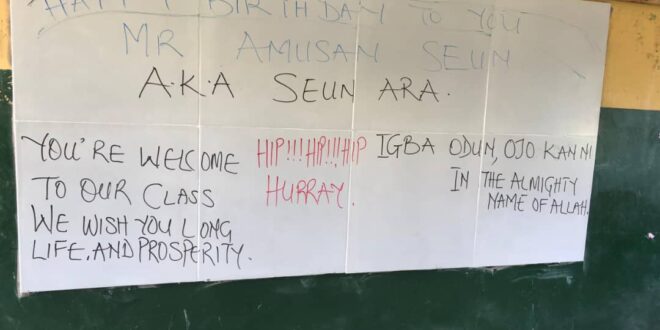 HAPPY BIRTHDAY TO YOU
MR AMUSAN SEUN
A.K.A SEUN ARA.
YOU'RE WELCOME
TO OUR CLASS
WE WISH YOU LONG
LIFE, AND PROSPERITY.
HIP!!! HIP!!! HIP
HURRAY.
IGBA ODUN, OJO KAN NI
IN THE ALMIGHTY
NAME OF ALLAH.